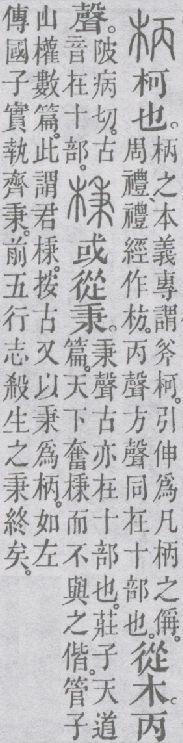 柄 柯也。柄之本義專謂斧柯。引伸爲凡柄之偁。周禮、禮經作枋。丙聲方聲同在十部也。從木丙
聲。陂病切。古音在十部。棅 或從秉。秉聲古亦在十部也。莊子天道篇。天下奮棅而不與之偕。管子
山權數篇。此謂君棅。按古又以秉爲柄。如左傳國子實執齊秉。前五行志殺生之秉終矣。